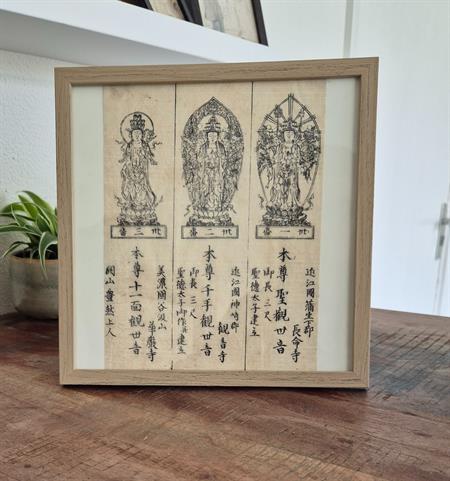 卅一番
近江國蒲生郡
長命寺
本尊聖觀世音
御長三尺
聖德太子建立
卅二番
近江國神崎郡
觀音寺
本尊千手觀世音
御長三尺
聖德太子御作并建立
卅三番
美濃國谷汲山
華嚴寺
本尊十一面觀世音
開山豊然上人